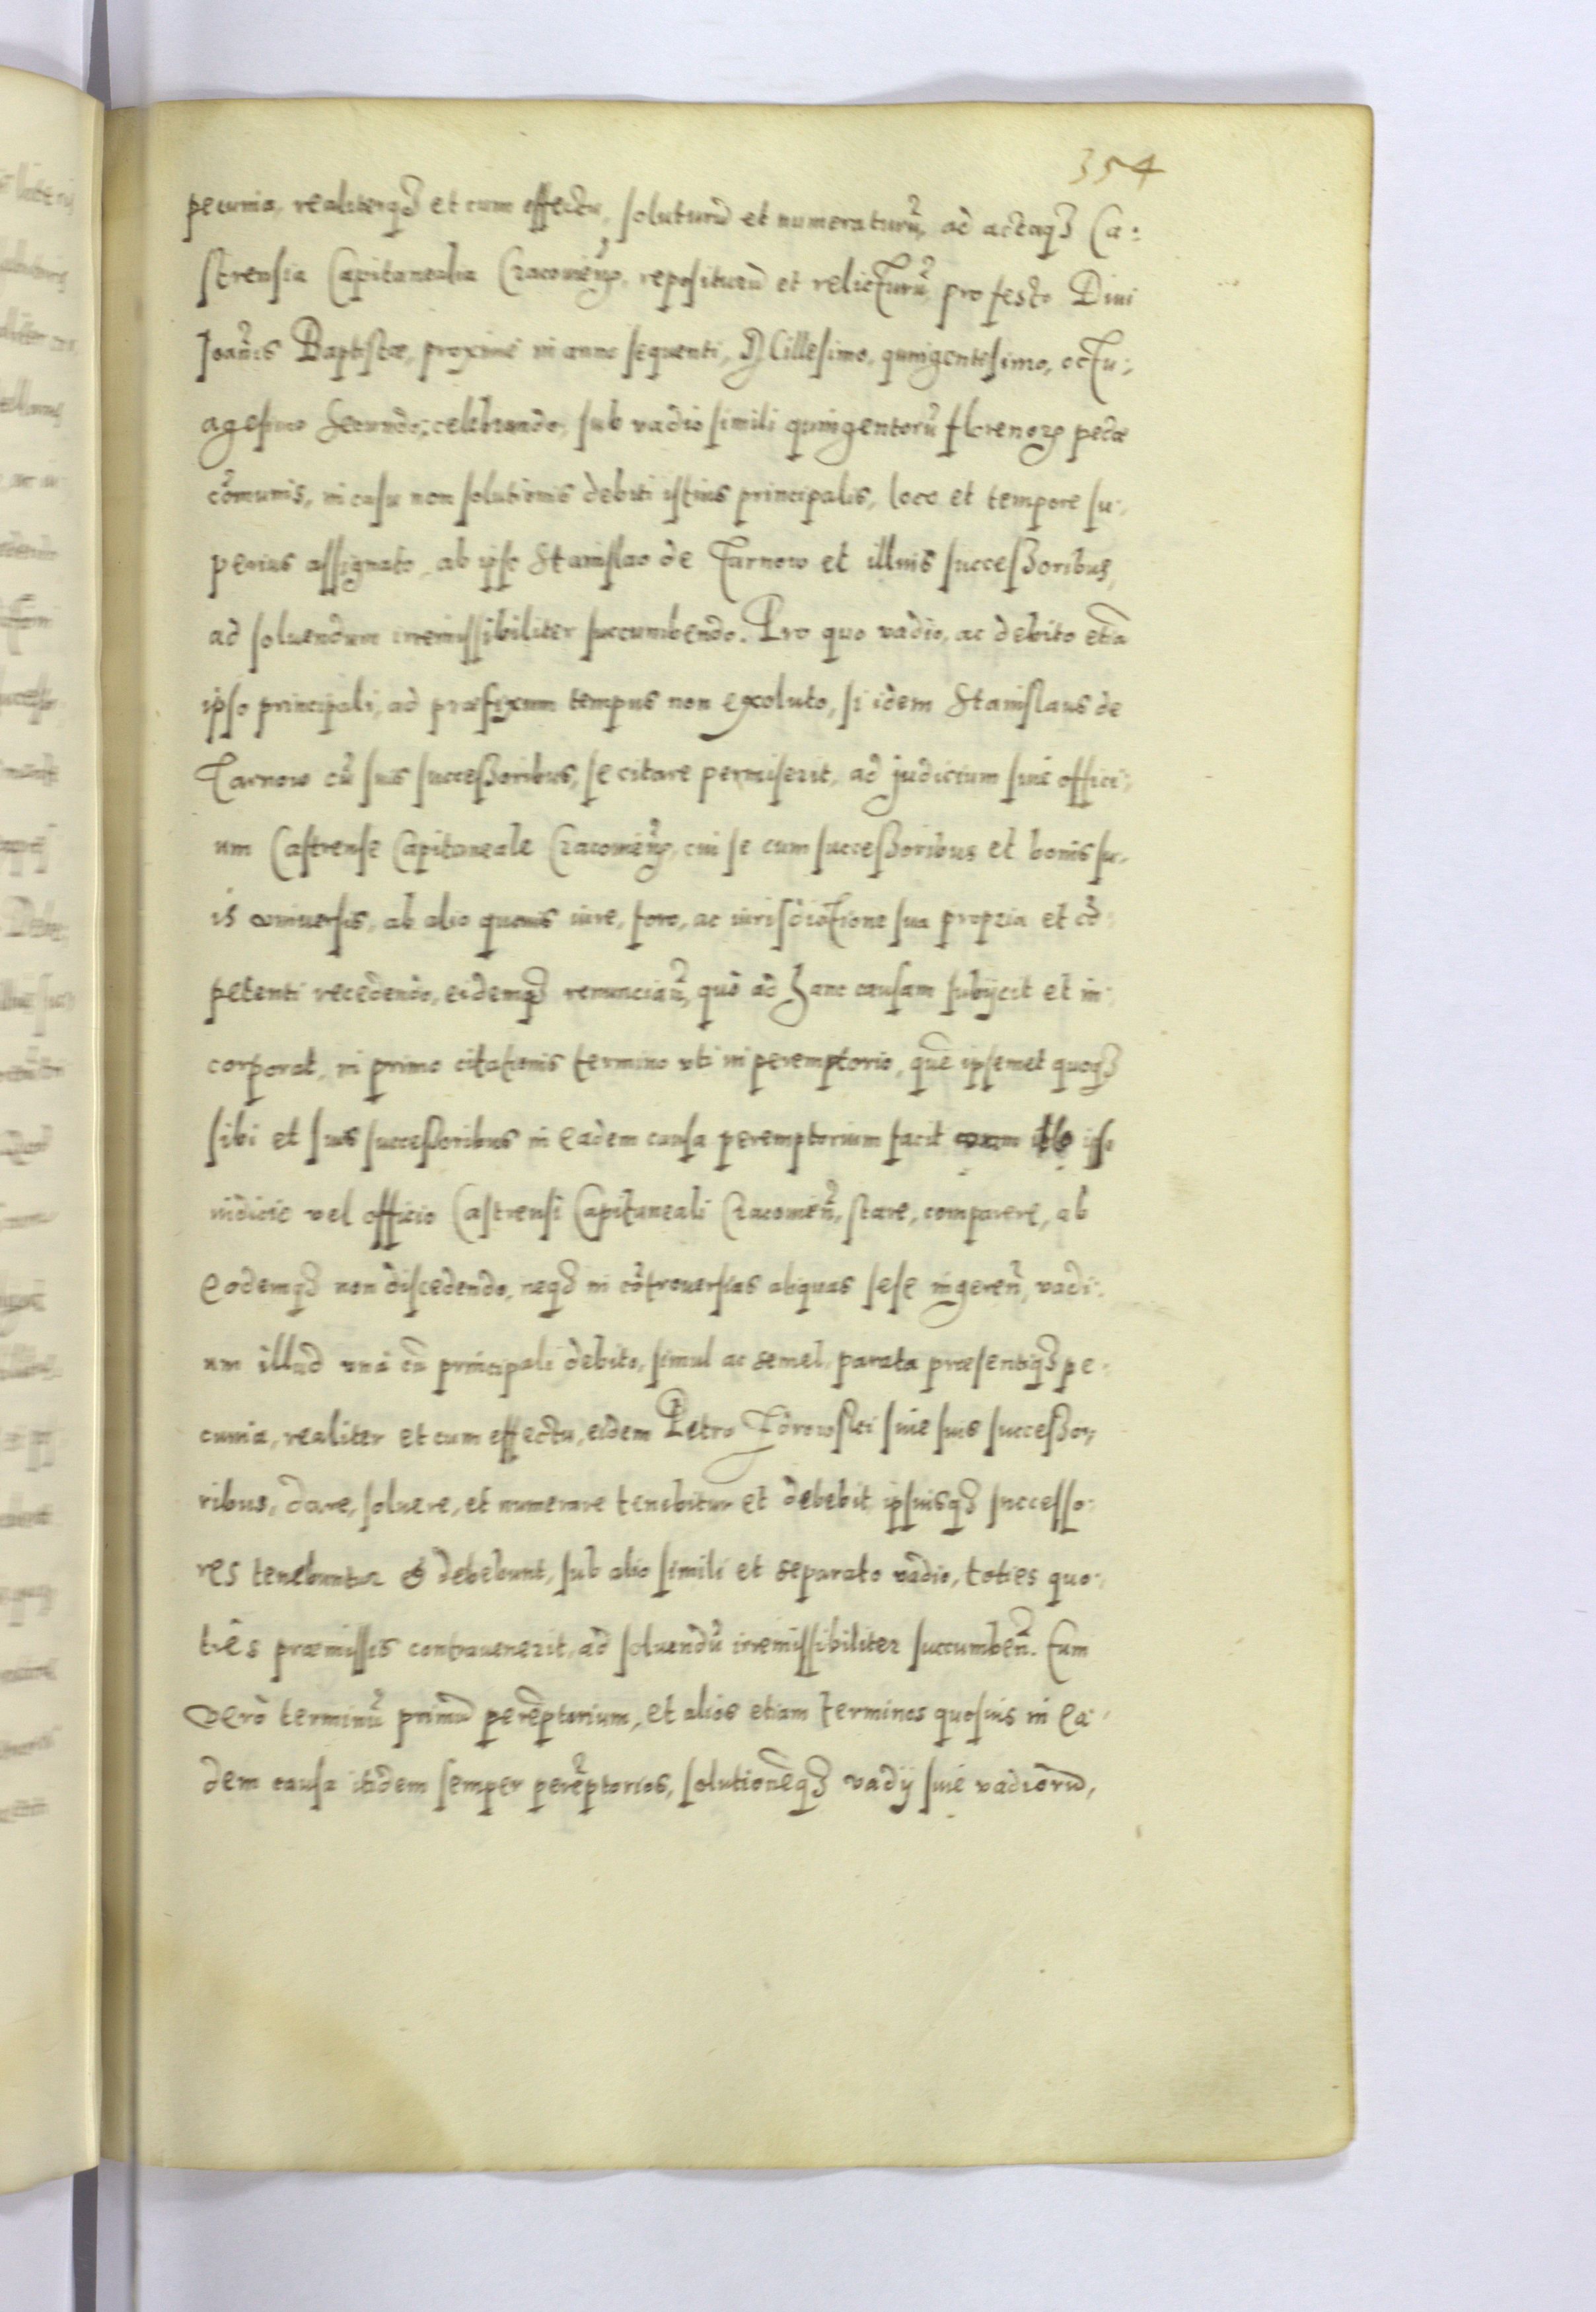 354
pecunia, realiterq3 et cum effectu, soluturũ et numeraturũ, ad actaq3 Ca:
strensia Capitanealia Cracovieñ, repositurũ et relicturũ, pro festo Divi
Joañis Baptistæ, proximè in anno sequenti, Millesimo, quingentesimo, octu:
agesimo secundo, celebrando, sub vadio simili quingentorũ florenorꝝ pecᷓ
cõmunis, in casu non solutionis debiti istius principalis, loco et tempore su:
perius assignato, ab ipso Stanislao de Tarnow et illius successoribus,
ad soluendum irremissibiliter succumbendo. Pro quo vadio, ac debito etiã
ipso principali, ad præfixum tempus non exoluto, si idem Stanislaus de
Tarnow cũ suis successoribus, se citare permiserit, ad judicium siuè offici:
um Castrense Capitaneale Cracovieñ, cui se cum successoribus et bonis su:
is vniuersis, ab alio quouis iure, foro, ac iurisdictione sua propria et cõ:
petenti recedendo, eidemq3 renunciañ, quò ad hanc causam subijcit et in:
corporat, in primo citationis termino vti in peremptorio, quẽ ipsemet quoq3
sibi et suis successoribus in eadem causa peremptorium facit coram illo ipso
iudicio vel officio Castrensi Capitaneali Cracovieñ, stare, comparere, ab
eodemq3 non discedendo, neq3 in cõtrouersias aliquas sese ingereñ, vadi:
um illud unà cũ principali debito, simul ac semel, parata præsentiq3 pe:
cunia, realiter et cum effectu, eidem Petro Zdrowski siue suis successo:
ribus, dare, soluere, et numerare tenebitur et debebit, ipsiusq3 successo:
res tenebuntur & debebunt, sub alio simili et separato vadio, toties quo:
tiês præmissis contrauenerit, ad soluendũ irremissibiliter succumbeñ. Eum
verò terminũ primũ perẽptorium, et alios etiam terminos quosuis in ea:
dem causa itidem semper perẽptorios, solutionẽq3 vadij siuè vadiorũ,